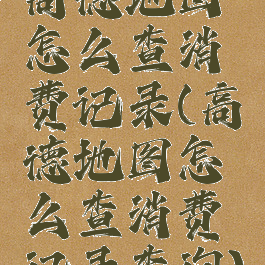 高德地图
怎么查消
费记录(高
德地图怎
么查消费
记录查询)